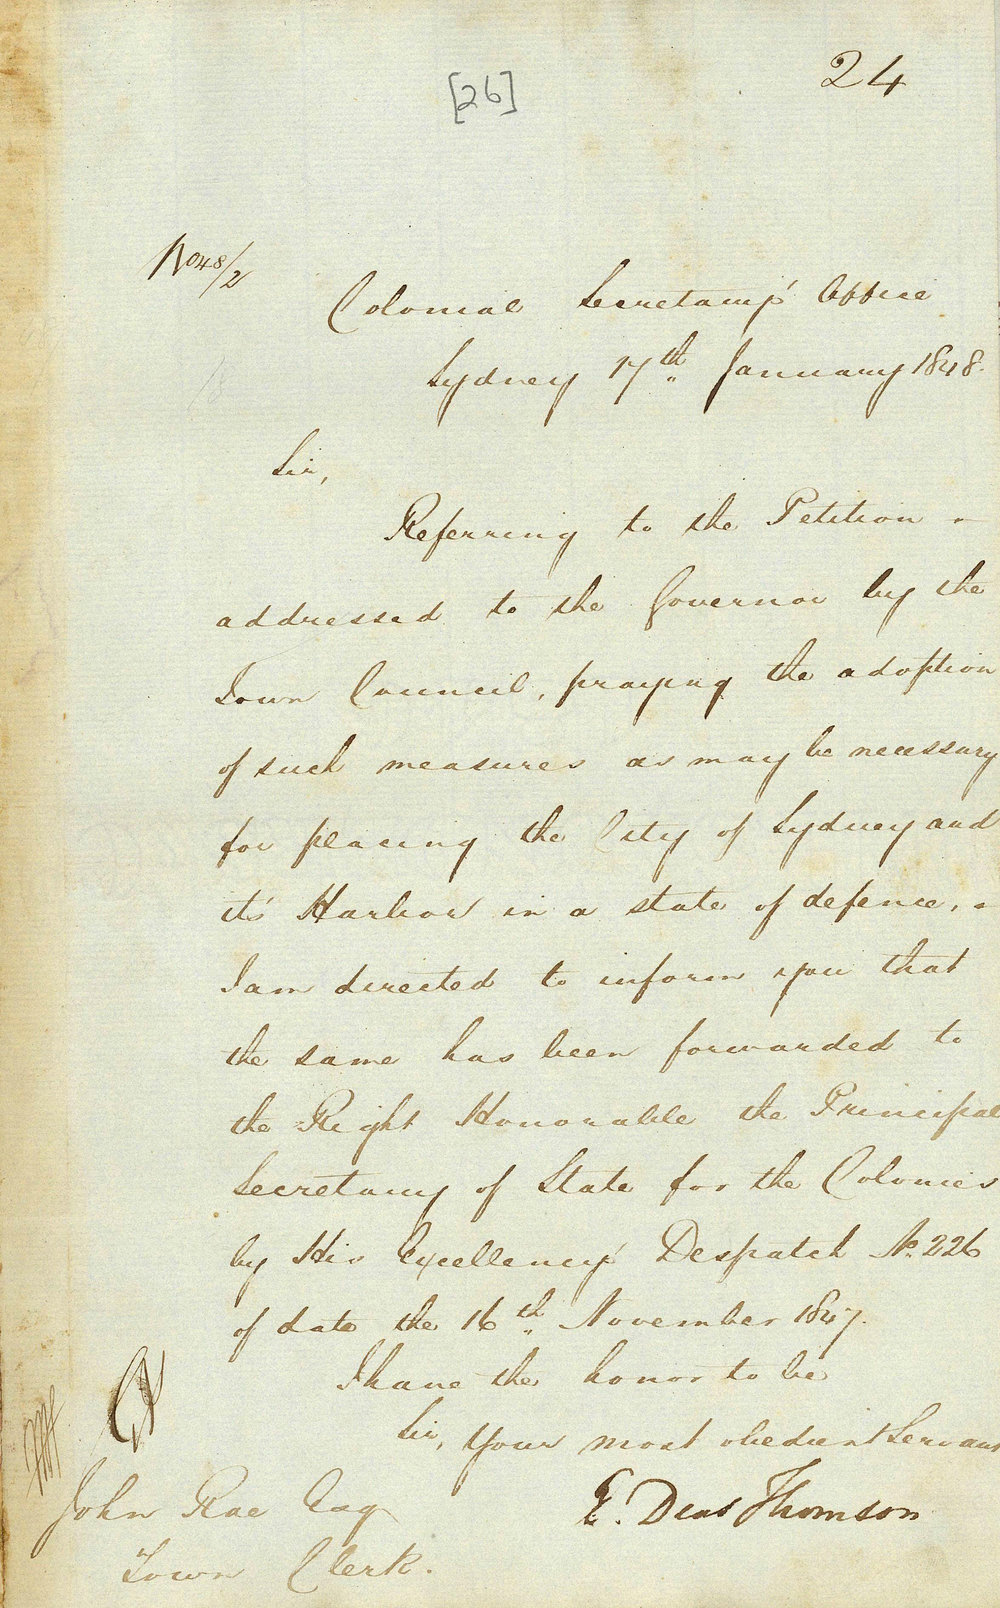 24
[26]
No 48/2
Colonial Secretary's Office
Sydney 17th January 1848.
Sir,
Referring to the Petition
addressed to the Governor by the
Town Council, praying the adoption
of such measures as may be necessary
for placing the City of Sydney and
it's Harbor in a state of defence,
I am directed to inform you that
the same has been forwarded to
the Right Honorable the Principal
Secretary of State for the Colonies
by His Excellency's Despatch No. 226
of date the 16th November 1847.
I have the honor to be
Sir, Your most obedient Servant
E. Deas Thomson
John Rae Esq
Town Clerk.